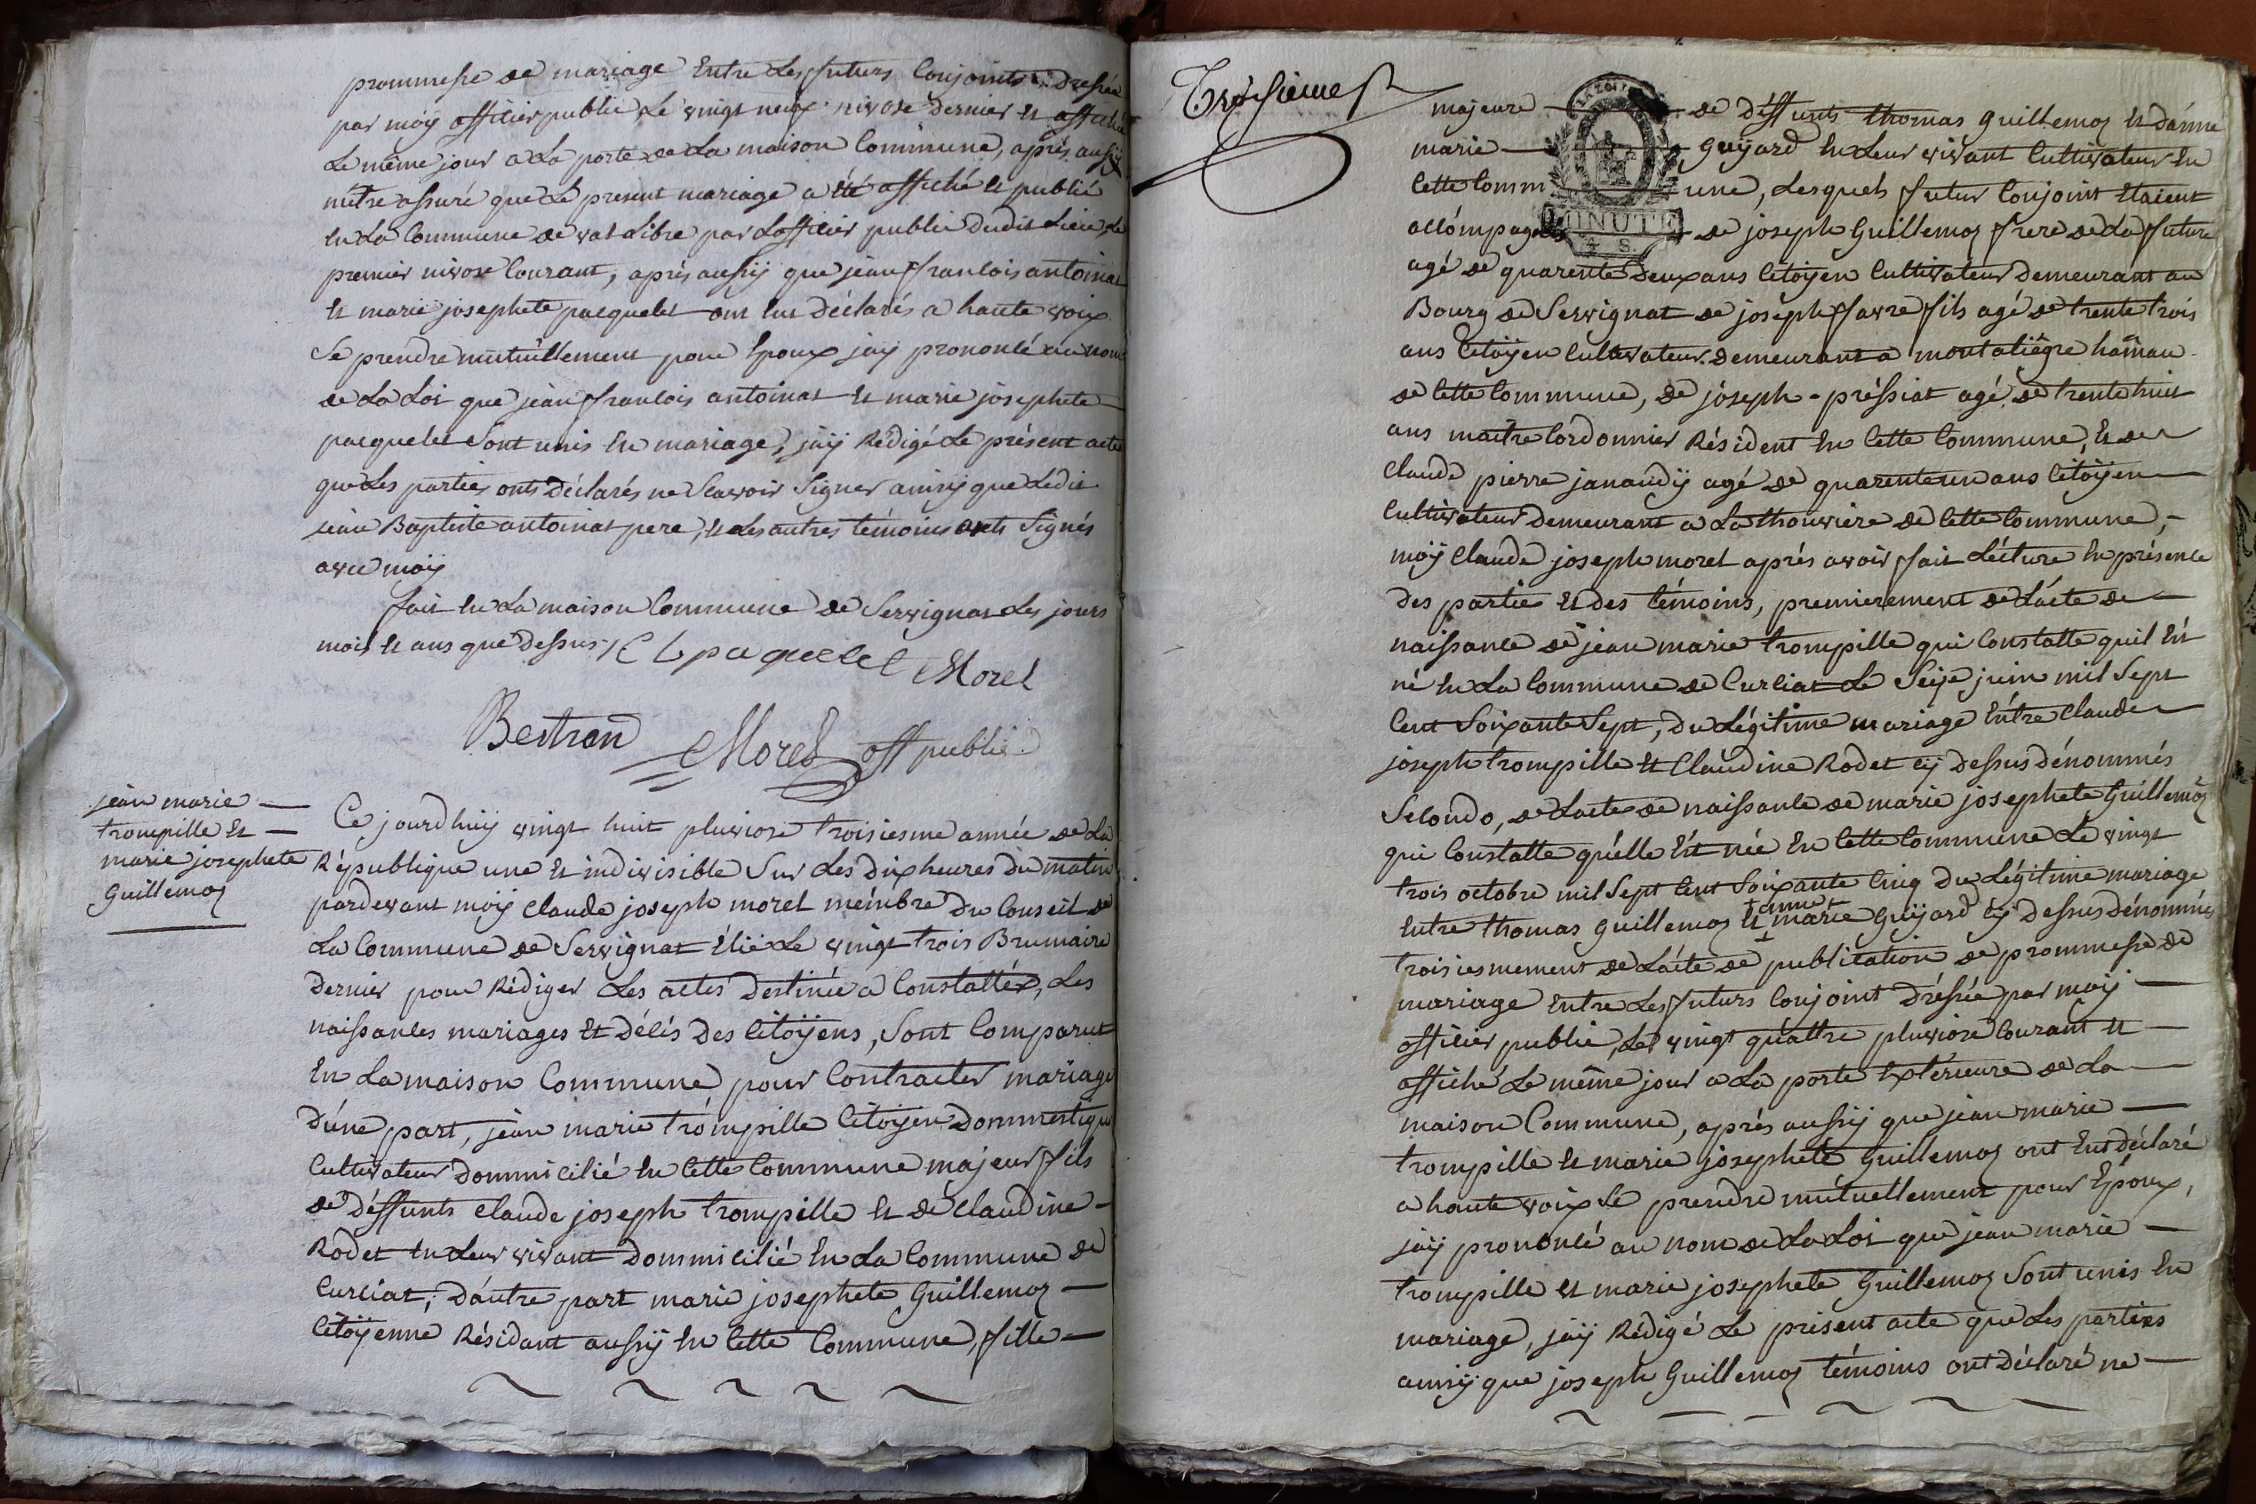 prommesse de mariage Entre Les futurs Conjoints Dressée
par moÿ officier public Le vingt neuf nivose dernier Et affiché
Le même jour a La porte de La maison Commune, après aussÿ
mêtre assuré que Le present mariage a été affiché Et publié
En La Commune de val Libre par Lofficier public dudit Lieu Le
premier nivose Courant, après aussÿ que jean francois antoinat
Et marie josephete pacquelet ont Eut déclarés a haute voix
Se prendre mutuellement pour Epoux jaÿ prononcé au nom
de La Loi que jean francois antoinat Et marie josephete
pacquelet Sont unis En mariage, jaÿ Rédigé Le présent acte
que Les parties onts déclarés ne Scavoir Signer ainsÿ que Ledit
jean Baptiste antoinat pere, Et Les autres témoins onts Signés
avec moÿ
fait En La maison Commune de Servignat Les jours
mois Et ans que dessus
paquelet Morel
Bertran Morel off public
jean marie
trompille Et
marie josephete
Guillemoz
Ce jourdhuÿ vingt huit pluviose troisiesme année de La
République une Et indivisible Sur Les dix heures du matin
pardevant moÿ Claude joseph morel mémbre du Conseil de
La Commune de Servignat Elü Le vingt trois Brumaire
dernier pour Rédiger Les actes destinée a Constatter, Les
naissances mariages Et délés des Citoÿens, Sont Comparut
En La maison Commune pour Contracter mariage
d'úne part, jean marie trompille Citoÿen dommestique
Cultivateur dommicilié En Cette Commune majeur fils
de déffunts Claude joseph trompille Et de Claudine
Rodet En Leur vivant dommicilié En La Commune de
Curciat, d'autre part marie josephete Guillemoz
Citoÿenne Résidant aussÿ En Cette Commune, fille
Troisieme
majeure de déffunts thomas guillemoz Et dánne
marie Guÿard En Leur vivant Cultivateur En
Cette Comm une, Lesquels futur Conjoint Etaient
accompagnés de joseph Guillemoz frere de La future
MINUTE
4 S.
agé de quarente deux ans Citoÿen Cultivateur demeurant au
Bourg de Servignat de joseph favre fils agé de trente trois
ans Citoÿen Cultivateur demeurant a montaliègre hamau
de Cette Commune, de joseph préssiat agé de trente huit
ans maitre Cordonnier Résident En Cette Commune, Et de
Claude pierre janaudÿ agé de quarente un ans Citoÿen
Cultivateur demeurant a La thouviere de Cette Commune,
moÿ Claude joseph morel après avoir fait Lécture En présence
des partie Et des témoins, premierement de Lácte de
naissance de jean marie trompille qui Constatte quil Ét
né En La Commune de Curciat Le Seize juin mil Sept
Cent Soixante Sept, du Légitime mariage Entre Claude
joseph trompille Et Claudine Rodet cÿ dessus dénommés
Secondo, de Lacte de naissance de marie josephete Guillemoz
qui Constatte qu'elle Ét née En Cette Commune Le vingt
trois octobre mil Sept Cent Soixante Cinq du Légitime mariage
anne
Entre thomas guillemoz Et marie Guÿard cÿ dessus dénommés
troisiesmement de Lácte de publication de prommesse de
mariage Entre Les futurs Conjoint dréssée par moÿ
officier public, Le vingt quáttre pluviose Courant Et
affiché Le même jour a La porte Extérieure de La
maison Commune, après aussÿ que jean marie
trompille Et marie josephete Guillemoz ont Eut déclaré
a haute voix Se prendre mutuellement pour Époux,
jaÿ prononcé au nom de La Loi que jean marie
trompille Et marie josephete Guillemoz Sont unis En
mariage, jaÿ Rédigé Le présent acte que Les parties
ainsÿ que joseph Guillemoz témoins ont déclaré ne